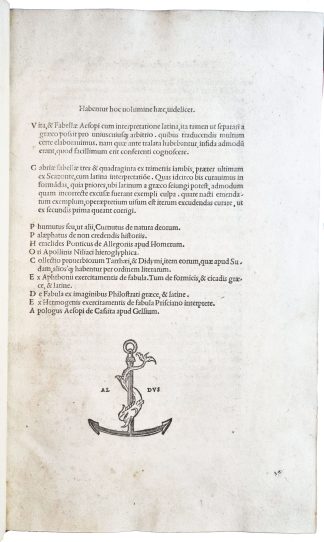 Habentur hoc uolumine hæc, uidelicet.
Vita, & Fabellæ Aesopi cum interpretatione latina, ita tamen ut separari a
græco possit pro uniuscuiusq; arbitrio. quibus traducendis multum
certe elaborauimus. nam quæ ante tralata habebantur, infida admodũ
erant, quod facillimum erit conferenti cognoscere.
Gabriæ fabellæ tres & quadraginta ex trimetris iambis, præter ultimam
ex Scazonte, cum latina interpretatiõe. Quas idcirco bis curauimus in
formãdas, quia priores, ubi latinum a græco seiungi potest, admodum
quam incorrecte excusæ fuerant exempli culpa. quare nacti emenda
tum exemplum, operæpretium uisum est iterum excudendas curare, ut
ex secundis primæ queant corrigi.
Phurnutus seu, ut alii, Curnutus de natura deorum.
Palæphatus de non credendis historiis.
Heraclides Ponticus de Allegoriis apud Homerum.
Ori Apollinis Niliaci hieroglyphica.
Collectio prouerbiorum Tarrhæi, & Didymi, item eorum, quæ apud Su
dam, aliosq; habentur per ordinem literarum.
Ex Aphthonii exercitamentis de fabula. Tum de formicis, & cicadis græ
ce, & latine.
De Fabula ex imaginibus Philostrati græce, & latine.
Ex Hermogenis exercitamentis de fabula Prisciano interprete.
Apologus Aesopi de Cassita apud Gellium.
AL DVS